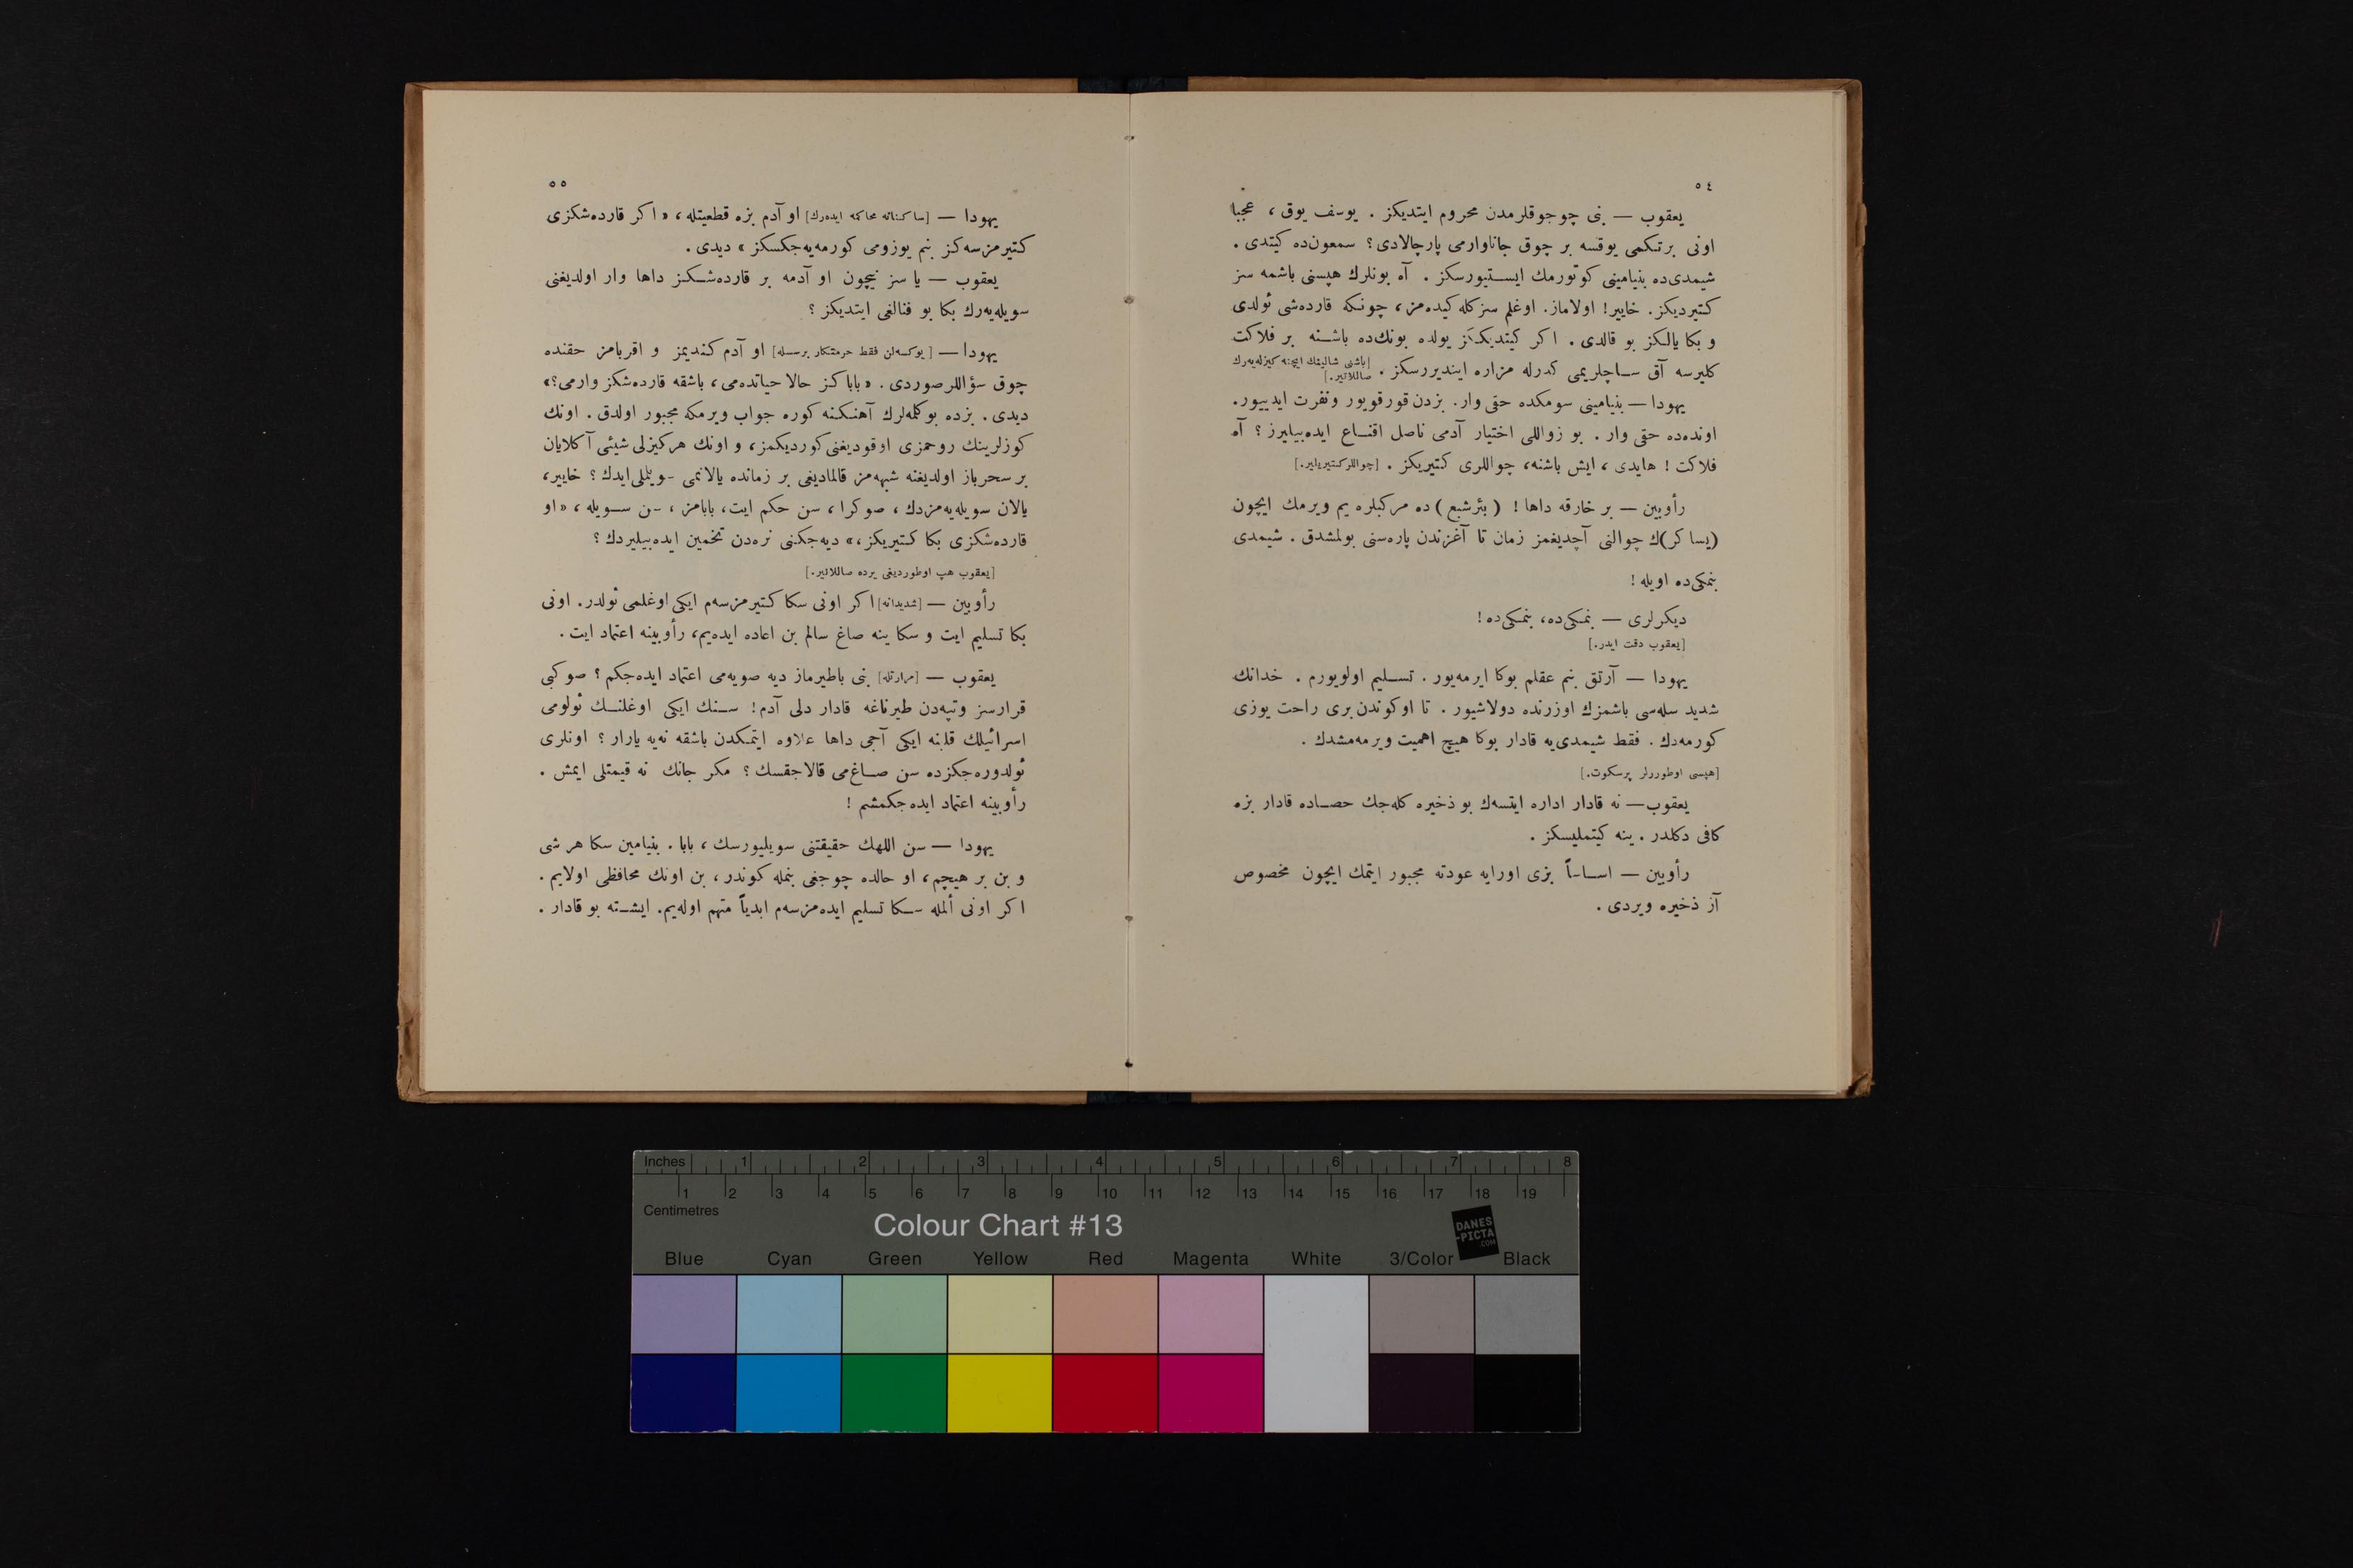 ٥٤
يعقوب — بنى چوجوقلرمدن محروم ايتديكز . يوسف يوق ، عجبا
اونى برتكمى يوقسه بر چوق جاناوارمى پارچالادى؟ سمعون‌ده كيتدى .
شيمدى‌ده بنيامينى كوتورمك ايستيورسكز . آه بونلرك هپسنى باشمه سز
كتيرديكز . خايير! اولاماز . اوغلم سزكله كيده‌مز ، چونكه قارده‌شى ئولدى
و بكا يالكز بو قالدى . اكر كيتديككز يولده بونك‌ده باشنه بر فلاكت
كليرسه آق ساچلريمى كدرله مزاره اينديررسكز . [باشنى شالينك ايچنه كيزله‌يه‌رك
صاللانير.]
يهودا — بنيامينى سومكده حقى وار . بزدن قورقويور ونفرت ايدييور .
اونده‌ده حقى وار . بو زواللى اختيار آدمى ناصل اقناع ايده‌بيليرز ؟ آه
فلاكت ! هايدى ، ايش باشنه ، چواللرى كتيريكز . [چواللركتيريلير.]
رأوبين — بر خارقه داها ! (بئرشبع) ده مركبلره يم ويرمك ايچون
(يساكر)ك چوالنى آچديغمز زمان تا آغزندن پاره‌سنى بولمشدق . شيمدى
بنمكى‌ده اويله !
ديكرلرى — بنمكى‌ده ، بنمكى‌ده !
[يعقوب دقت ايدر.]
يهودا — آرتق بنم عقلم بوكا ايرمه‌يور . تسليم اولويورم . خدانك
شديد سله‌سى باشمزك اوزرنده دولاشيور . تا اوكوندن برى راحت يوزى
كورمه‌دك . فقط شيمدى‌يه قادار بوكا هيچ اهميت ويرمه‌مشدك .
[هپسى اوطوررلر پرسكوت.]
يعقوب — نه قادار اداره ايتسه‌ك بو ذخيره كله‌جك حصاده قادار بزه
كافى دكلدر . ينه كيتمليسكز .
رأوبين — اساساً بزى اورايه عودته مجبور ايتمك ايچون مخصوص
آز ذخيره ويردى .
٥٥
يهودا — [ساكنانه محاكمه ايده‌رك] او آدم بزه قطعيتله ، « اكر قارده‌شكزى
كتيرمزسه‌كز بنم يوزومى كورمه‌يه‌جكسكز » ديدى .
يعقوب — يا سز نيچون او آدمه بر قارده‌شكز داها وار اولديغنى
سويله‌يه‌رك بكا بو فنالغى ايتديكز ؟
يهودا — [يوكسه‌لن فقط حرمتكار برسسله] او آدم كنديمز و اقربامز حقنده
چوق سؤاللر صوردى . « باباكز حالا حياتده‌مى ، باشقه قارده‌شكز وارمى؟»
ديدى . بزده بوكلمه‌لرك آهنكنه كوره جواب ويرمكه مجبور اولدق . اونك
كوزلرينك روحمزى اوقوديغنى كورديكمز ، و اونك هركيزلى شيئى آكلايان
بر سحرباز اولديغنه شبهه‌مز قالماديغى بر زمانده يالانمى سويللى‌ايدك ؟ خايير ،
يالان سويله‌يه‌مزدك ، صوكرا ، سن حكم ايت ، بابامز ، سن سويله ، « او
قارده‌شكزى بكا كتيريكز ، » ديه‌جكنى نره‌دن تخمين ايده‌بيليردك ؟
[يعقوب هپ اوطورديغى يرده صاللانير.]
رأوبين — [شديدانه] اكر اونى سكا كتيرمزسه‌م ايكى اوغلمى ئولدر . اونى
بكا تسليم ايت و سكا ينه صاغ سالم بن اعاده ايده‌يم ، رأوبينه اعتماد ايت .
يعقوب — [مرارتله] بنى باطيرماز ديه صويه‌مى اعتماد ايده‌جكم ؟ صو كبى
قرارسز وتپه‌دن طيرناغه قادار دلى آدم ! سنك ايكى اوغلنك ئولومى
اسرائيلك قلبنه ايكى آجى داها علاوه ايتمكدن باشقه نه‌يه يارار ؟ اونلرى
ئولدوره‌جكزده سن صاغ‌مى قالاجقسك ؟ مكر جانك نه قيمتلى ايمش .
رأوبينه اعتماد ايده‌جكمشم !
يهودا — سن اللهك حقيقتنى سويليورسك ، بابا . بنيامين سكا هر شى
و بن بر هيچم ، او حالده چوجغى بنمله كوندر ، بن اونك محافظى اولايم .
اكر اونى ألمله سكا تسليم ايده‌مزسه‌م ابدياً متهم اوله‌يم . ايشته بو قادار .
Inches 1 2 3 4 5 6 7 8
1 2 3 4 5 6 7 8 9 10 11 12 13 14 15 16 17 18 19
Centimetres
Colour Chart #13
DANES
-PICTA
.COM
Blue Cyan Green Yellow Red Magenta White 3/Color Black